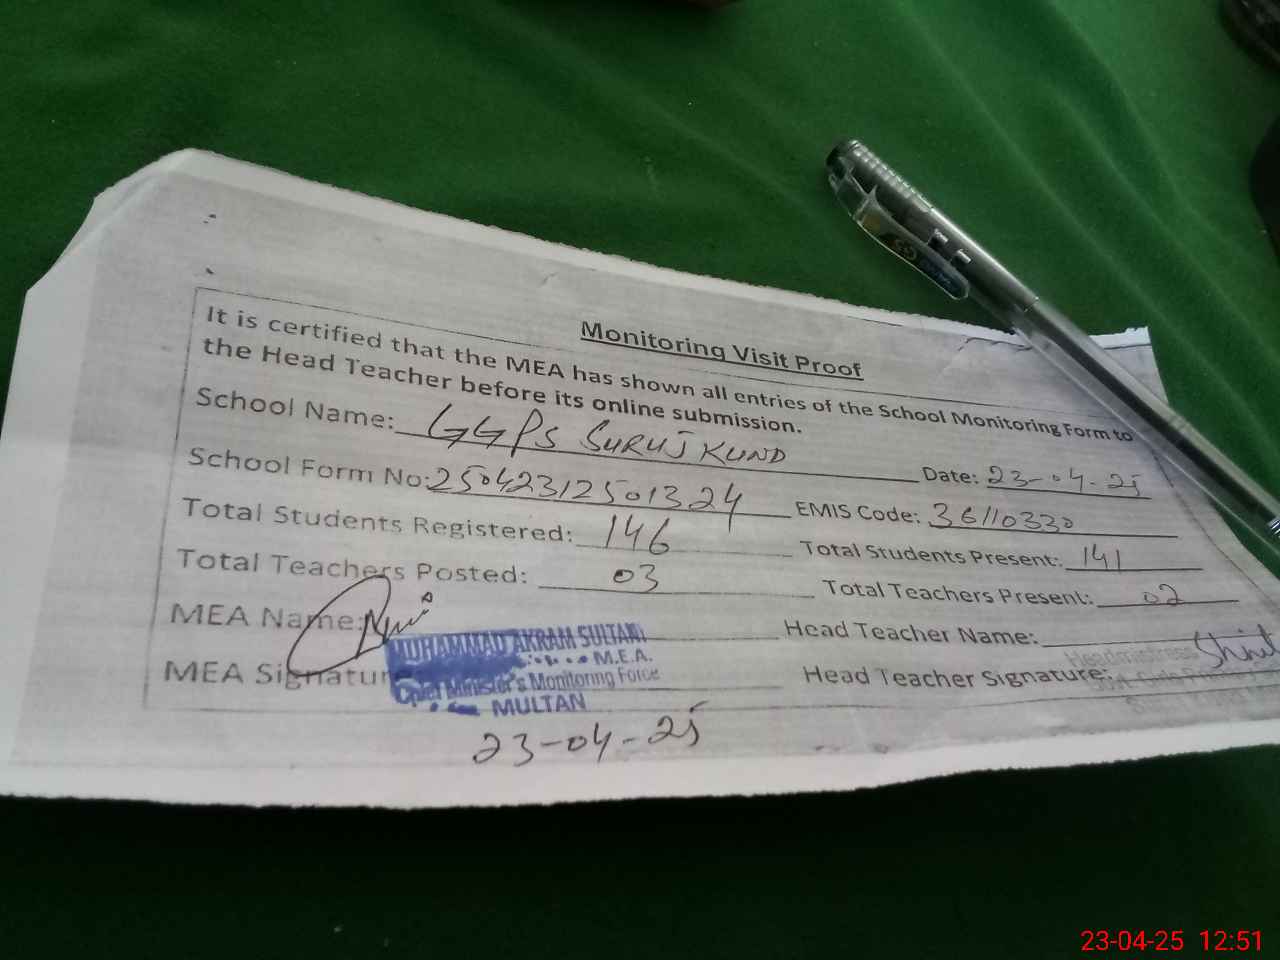 Monitoring Visit Proof
It is certified that the MEA has shown all entries of the School Monitoring Form to
the Head Teacher before its online submission.
School Name: GGPS SURUJ KUND Date: 23-04-25
School Form No: 25042312501324 EMIS Code: 36110330
Total Students Registered: 146 Total Students Present: 141
Total Teachers Posted: 03 Total Teachers Present: 02
MEA Name: Head Teacher Name:
MEA Signatur Head Teacher Signature:
MUHAMMAD AKRAM SULTANI
M.E.A.
Chief Minister's Monitoring Force
MULTAN
23-04-25
Headmistress
23-04-25 12:51